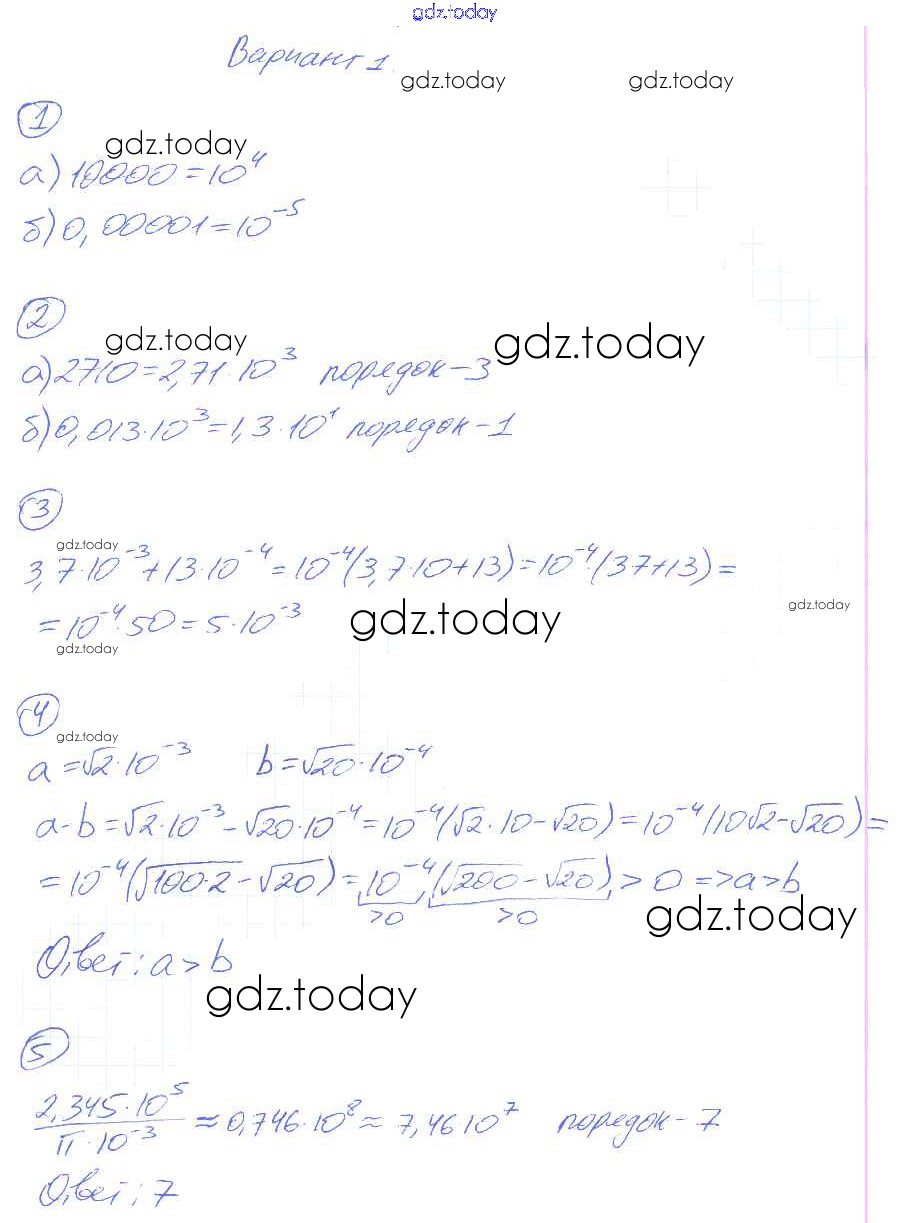 gdz.today
Вариант 1.
gdz.today gdz.today
1
gdz.today
а) 10000 = 10⁴
б) 0,00001 = 10⁻⁵
2
gdz.today gdz.today
а) 2710 = 2,71·10³ порядок - 3
б) 0,013·10³ = 1,3·10¹ порядок - 1
3
gdz.today
3,7·10⁻³ + 13·10⁻⁴ = 10⁻⁴(3,7·10+13) = 10⁻⁴·(37+13) =
gdz.today
= 10⁻⁴·50 = 5·10⁻³ gdz.today
gdz.today
4
gdz.today
a = √2·10⁻³ b = √20·10⁻⁴
a-b = √2·10⁻³ - √20·10⁻⁴ = 10⁻⁴(√2·10-√20) = 10⁻⁴(10√2-√20) =
= 10⁻⁴(√100·2 - √20) = 10⁻⁴(√200 - √20) > 0 => a > b
>0 >0
gdz.today
Ответ: a > b
gdz.today
5
2,345·10⁵
/ π·10⁻³ ≈ 0,746·10⁸ ≈ 7,46·10⁷ порядок - 7
Ответ: 7